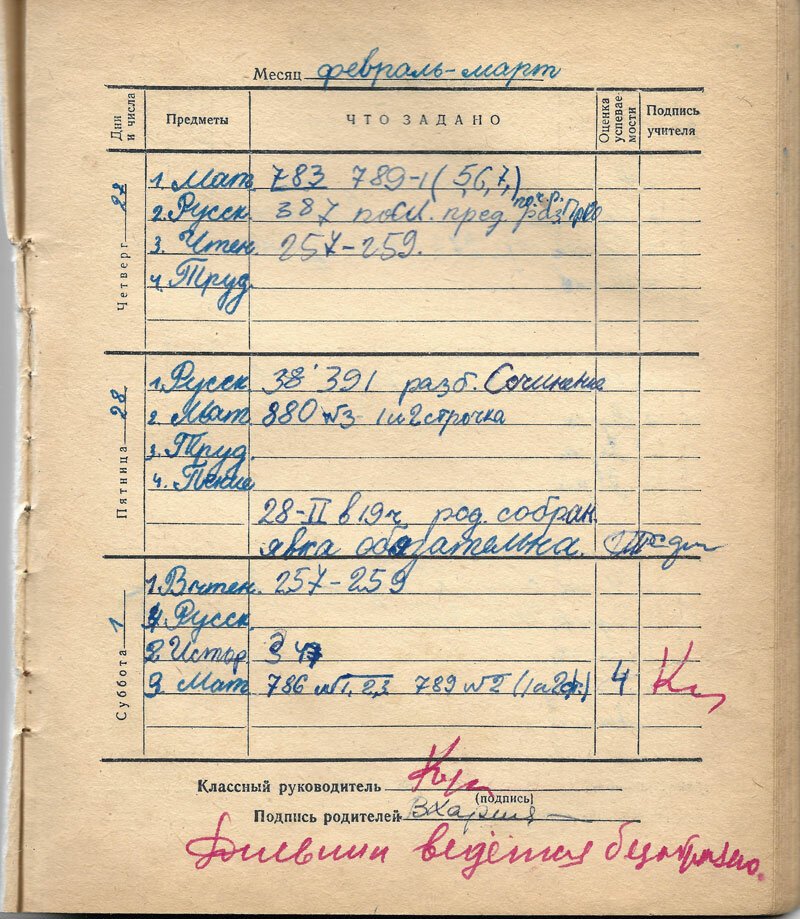 Месяц февраль-март
Дни и числа
Предметы
ЧТО ЗАДАНО
Оценка успевае-мости
Подпись учителя
Четверг 27
1. Мат. 783 789-1 (5,6,7,)
2. Русск. 387 повт. пред. раз.
3. Чтен. 257-259.
4. Труд.
Пятница 28
1. Русск 38 391 разб. Сочинение
2. Мат. 880 №3 1 и 2 строчка
3. Труд.
4. Пение
28-II в 19ч род. собран.
явка обязательна.
Суббота 1
1. Вн.чтен. 257-259
Русск.
2 Истор § 47
3. Мат. 786 №1,2,3 789 №2 (1 и 2 ст.) 4
Классный руководитель
(подпись)
Подпись родителей
Дневник ведётся безобразно.